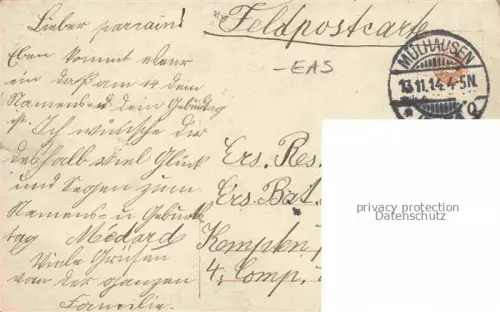 Lieber parrain!
Eben kommt
ein daß am 14 dem
Namens- und dein Geburtstag
ist. Ich wünsche dir
deshalb viel Glück
und Segen zum
Namens- u Geburts
tag Médard
Viele Grüsen
von der ganzen
Familie.
Feldpostcarte
- EAS
MÜLHAUSEN
13.11.14. 4-5N.
Ers. Res.
Ers. Bat.
Kempten
4. Comp.
privacy protection
Datenschutz